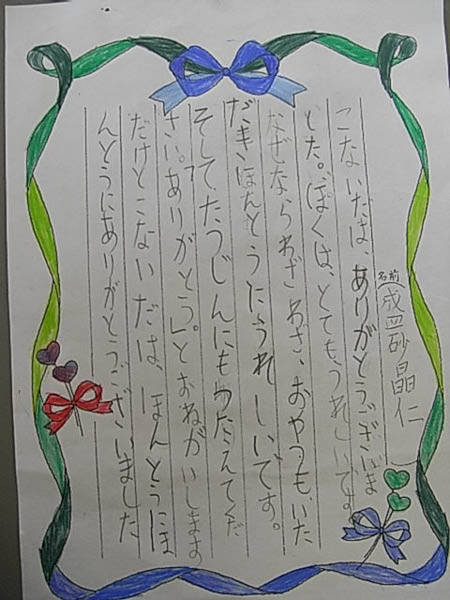 名前(成四砂晶仁
こないだは、ありがとうございま
した。ぼくは、とてもうれしいです
なぜならわざわざ、おやつも、いた
だきほんとうにうれしいです。
そしてたつじんにもつたえてくだ
さい。「ありがとう。」とおねがいします
だけどこないだは、ほんとうにほ
んとうにありがとうございました